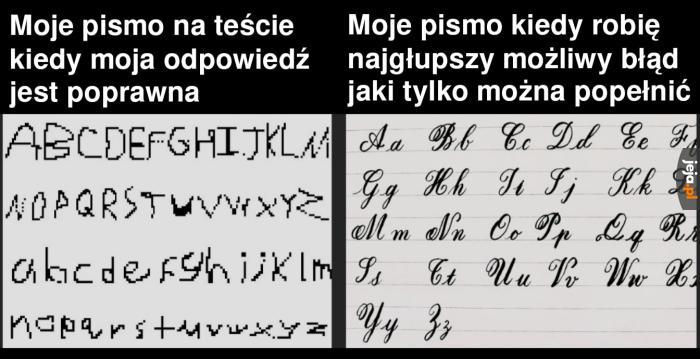 Moje pismo na teście
kiedy moja odpowiedź
jest poprawna
Moje pismo kiedy robię
najgłupszy możliwy błąd
jaki tylko można popełnić
ABCDEFGHIJKLM
NOPQRSTUVWXYZ
abcdefghijklm
nopqrstuvwxyz
Aa Bb Cc Dd Ee F
Gg Hh Ii Jj Kk
Mm Nn Oo Pp Qq Rr
Ss Tt Uu Vv Ww X
Yy Zz
jeja.pl